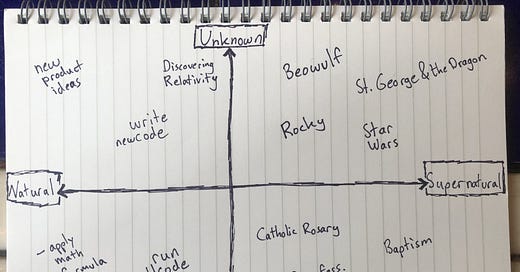 Unknown
new
product
ideas
Discovering
Relativity
Beowulf
St. George & the Dragon
write
newcode
Rocky
Star
Wars
Natural
Supernatural
- apply
math
formula
run
Catholic Rosary
Baptism